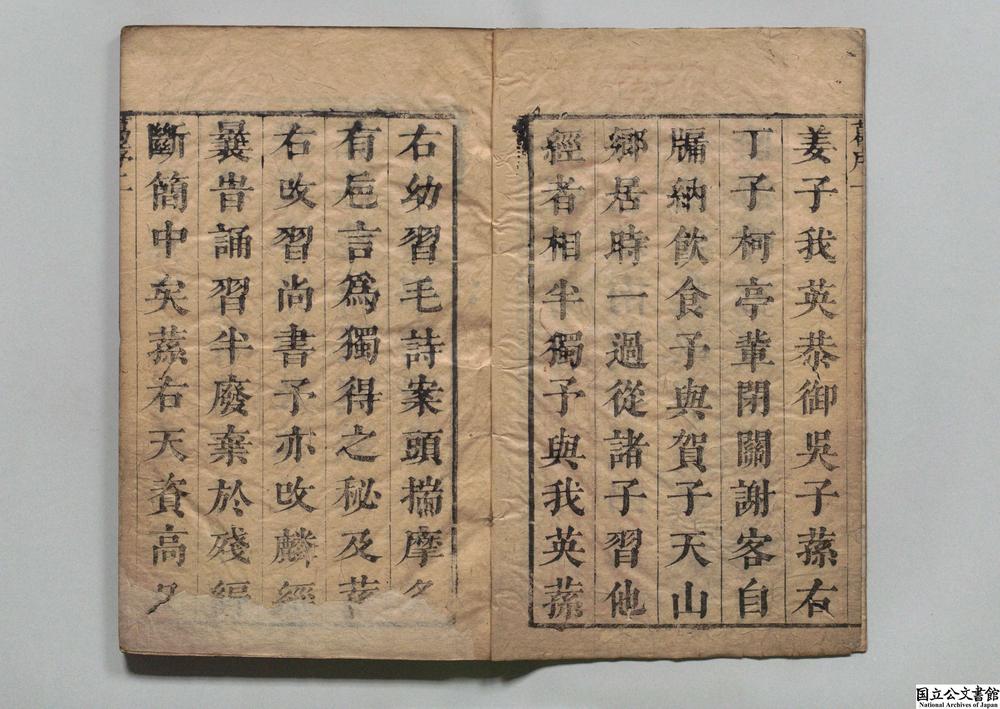 姜子我英恭御吳子蓀右
丁子柯亭輩閉關謝客自
牖納飲食予與賀子天山
鄉居時一過從諸子習他
經者相半獨予與我英蓀
右幼習毛詩案頭揣摩多
有巵言爲獨得之秘及
右攺習尚書予亦攺麟經
曩昔誦習半廢棄於殘編
斷簡中矣蓀右天資高
国立公文書館
National Archives of Japan